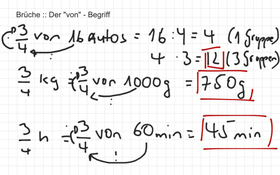 Brüche :: Der "von" - Begriff
3/4 von 16 autos = 16 : 4 = 4 (1 Gruppe)
4 · 3 = 12 (3 Gruppen)
3/4 kg = 3/4 von 1000g = 750g
3/4 h = 3/4 von 60min = 45min